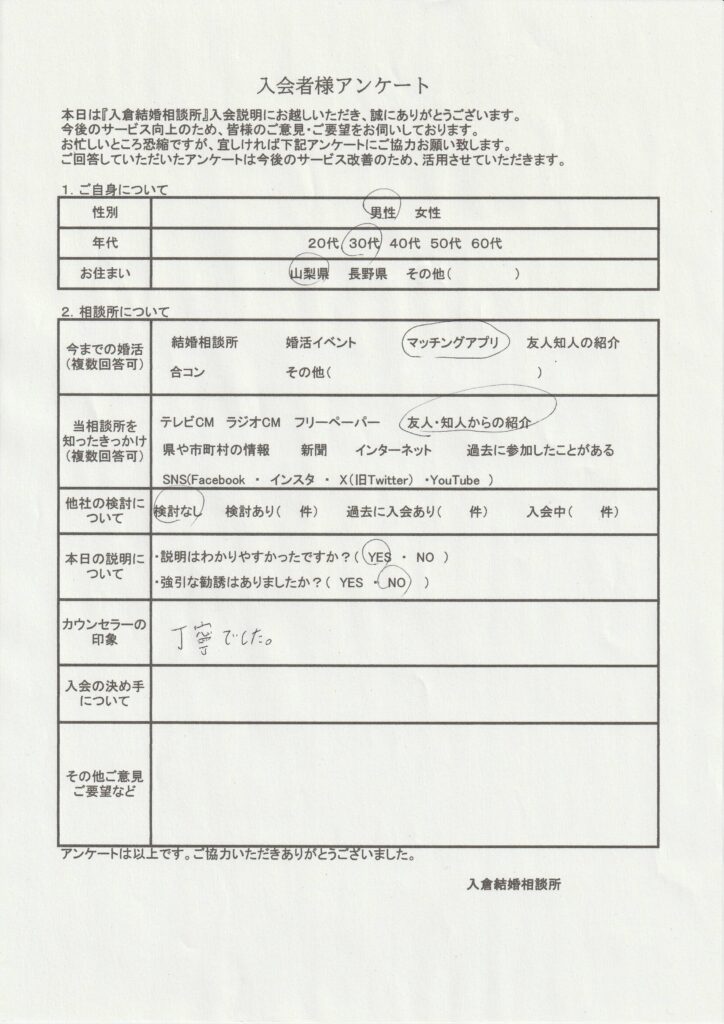 入会者様アンケート
本日は『入倉結婚相談所』入会説明にお越しいただき、誠にありがとうございます。
今後のサービス向上のため、皆様のご意見・ご要望をお伺いしております。
お忙しいところ恐縮ですが、宜しければ下記アンケートにご協力お願い致します。
ご回答していただいたアンケートは今後のサービス改善のため、活用させていただきます。
1．ご自身について
性別 男性 女性
年代 20代 30代 40代 50代 60代
お住まい 山梨県 長野県 その他( )
2．相談所について
今までの婚活
(複数回答可)
結婚相談所 婚活イベント マッチングアプリ 友人知人の紹介
合コン その他( )
当相談所を
知ったきっかけ
(複数回答可)
テレビCM ラジオCM フリーペーパー 友人・知人からの紹介
県や市町村の情報 新聞 インターネット 過去に参加したことがある
SNS(Facebook ・ インスタ ・ X(旧Twitter) ・YouTube )
他社の検討に
ついて
検討なし 検討あり( 件) 過去に入会あり( 件) 入会中( 件)
本日の説明に
ついて
・説明はわかりやすかったですか？( YES ・ NO )
・強引な勧誘はありましたか？( YES ・ NO )
カウンセラーの
印象
丁寧でした。
入会の決め手
について
その他ご意見
ご要望など
アンケートは以上です。ご協力いただきありがとうございました。
入倉結婚相談所